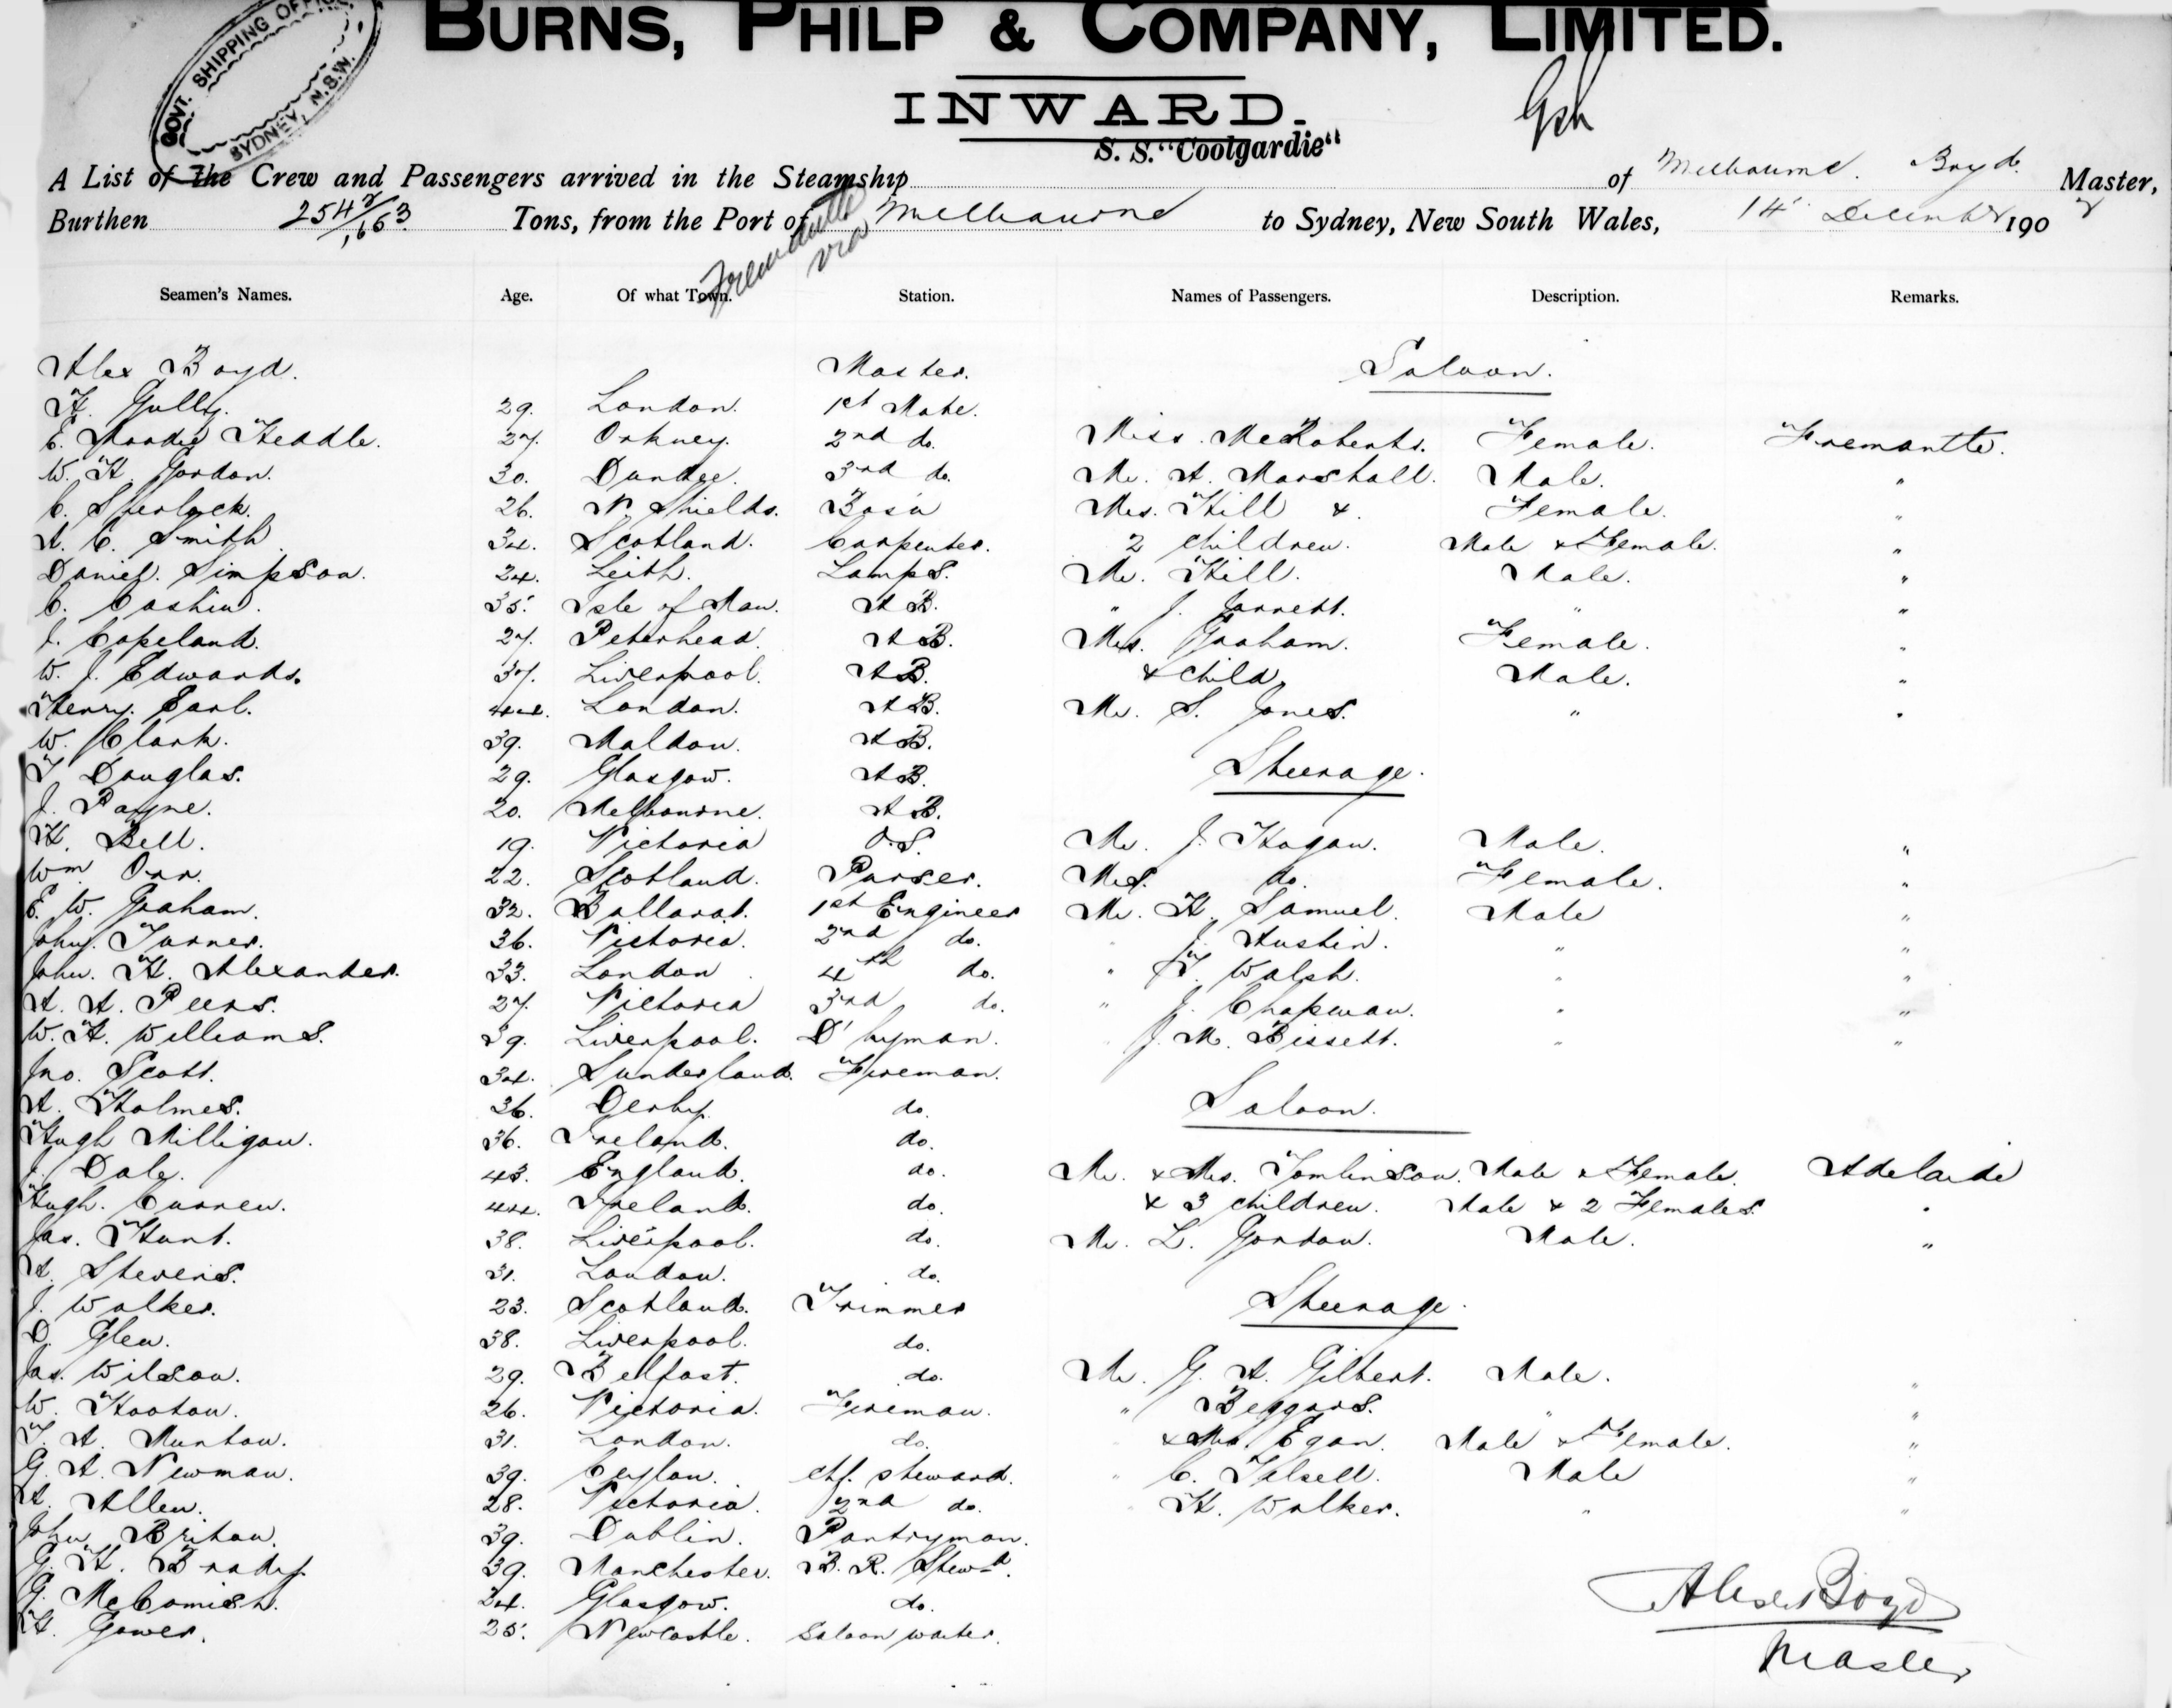 GOVT. SHIPPING OFFICE
SYDNEY, N.S.W.
BURNS, PHILP & COMPANY, LIMITED.
INWARD.
S. S. "Coolgardie"
A List of The Crew and Passengers arrived in the Steamship of Melbourne. Boyd. Master,
Burthen 2542/1,653 Tons, from the Port of Melbourne to Sydney, New South Wales, 14 December 190
Fremantle via
Seamen's Names. Age. Of what Town. Station. Names of Passengers. Description. Remarks.
Alex Boyd. Master. Saloon.
H. Gully. 29. London. 1st Mate.
E. Moodie Heddle. 27. Orkney. 2nd do. Miss. McRoberts. Female. Fremantle.
W. H. Gordon. 30. Dundee. 3rd do. Mr. A. Marshall. Male. "
C. Sherlock. 26. N. Shields. Bosn Mrs. Hill &. Female. "
A. C. Smith 34. Scotland. Carpenter. 2 children. Male & Female. "
Daniel. Simpson. 24. Leith. Lamps. Mr. Hill. Male. "
C. Cashin. 35. Isle of Man. A B. " J. Jarrett. " "
J. Copeland. 27. Peterhead. A B. Mrs. Graham. Female. "
W. J. Edwards. 37. Liverpool. A B. & child, Male. "
Henry. Earl. 44. London. A B. Mr. S. Jones. " "
W. Clark. 39. Maldon. A B.
T Douglas. 29. Glasgow. A B. Steerage.
J. Payne. 20. Melbourne. A B.
H. Bell. 19. Victoria O.S. Mr. J. Hogan. Male. "
Wm Orr. 22. Scotland. Purser. Mrs. do. Female. "
E. W. Graham. 32. Ballarat. 1st Engineer Mr. H. Samuel. Male "
John. Turner. 36. Victoria. 2nd do. " J. Austin. " "
John. H. Alexander. 33. London 4th do. " T. Walsh. " "
A. A. Peers. 27. Victoria 3rd do. " J. Chapman. " "
W. H. Williams. 39. Liverpool. D'kyman. " J. M. Bissett. " "
Jno. Scott. 34. Sunderland. Fireman.
A. Holmes. 36. Derby. do. Saloon.
Hugh Milligan. 36. Ireland. do.
J. Dale. 43. England. do. Mr. & Mrs. Tomlinson. Male & Female. Adelaide
Hugh. Curren. 44. Ireland. do. & 3 children. Male & 2 Females. "
Jas. Hunt. 38. Liverpool. do. Mr. L. Gordon. Male. "
A. Stevens. 31. London. do.
J. Walker. 23. Scotland. Trimmer Steerage.
D. Glen. 38. Liverpool. do.
Jas. Wilson. 29. Belfast. do. Mr. G. A. Gilbert. Male. "
W. Hooton. 26. Victoria. Fireman. " Beggars. " "
T. A. Munton. 31. London. do. " & Mrs. Egan. Male & Female. "
G. A. Newman. 39. Ceylon. chf. steward. " C. Male "
A. Allen. 28. Victoria. 2nd do. " H. Walker. " "
John Briton. 39. Dublin. Pantryman.
G. H. Brady. 39. Manchester. B. R. Stewd.
G. McComish. 24. Glasgow. do.
H. Gower. 25. Newcastle. Saloon waiter.
Alex Boyd
Master